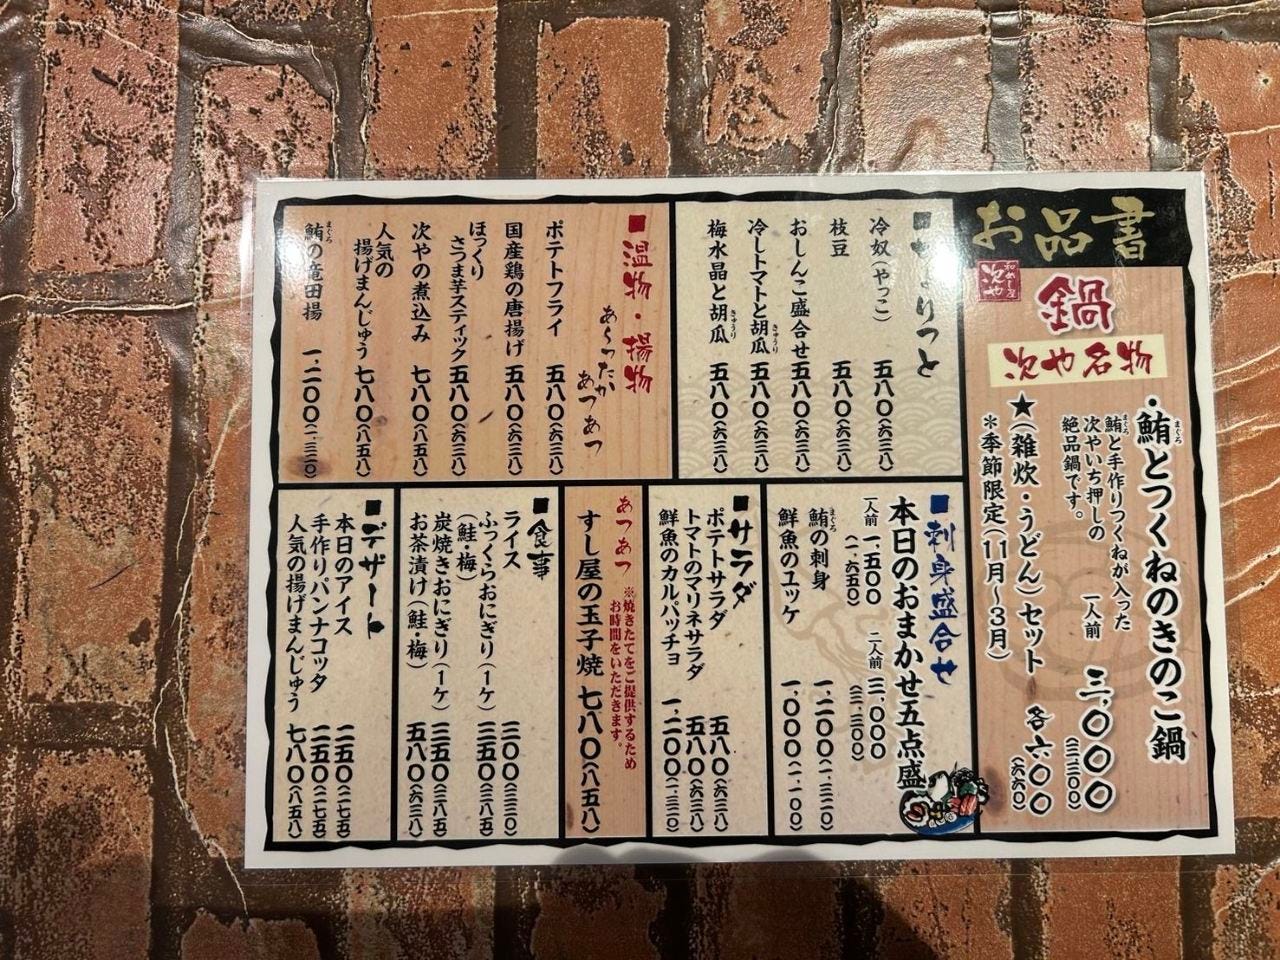 お品書
和めし屋
次や
鍋
次や名物
・鮪とつくねのきのこ鍋
まぐろ
鮪と手作りつくねが入った
まぐろ
次やいち押しの
絶品鍋です。
一人前 三,〇〇〇
(三,三〇〇)
★(雑炊・うどん)セット 各六〇〇
(六六〇)
※季節限定(11月~3月)
■ちょりっと
冷奴(やっこ) 五八〇(六三八)
枝豆 五八〇(六三八)
おしんこ盛合せ 五八〇(六三八)
冷しトマトと胡瓜 五八〇(六三八)
きゅうり
梅水晶と胡瓜 五八〇(六三八)
きゅうり
■温物・揚物
あったか
あつあつ
ポテトフライ 五八〇(六三八)
国産鶏の唐揚げ 五八〇(六三八)
ほっくり
さつま芋スティック 五八〇(六三八)
次やの煮込み 七八〇(八五八)
人気の
揚げまんじゅう 七八〇(八五八)
鮪の竜田揚 一,二〇〇(一,三二〇)
まぐろ
■刺身盛合せ
本日のおまかせ五点盛
一人前 一,五〇〇
(一,六五〇)
二人前 三,〇〇〇
(三,三〇〇)
鮪の刺身 一,二〇〇(一,三二〇)
まぐろ
鮮魚のユッケ 一,〇〇〇(一,一〇〇)
■サラダ
ポテトサラダ 五八〇(六三八)
トマトのマリネサラダ 五八〇(六三八)
鮮魚のカルパッチョ 一,二〇〇(一,三二〇)
あつあつ
※焼きたてをご提供するため
お時間をいただきます。
すし屋の玉子焼 七八〇(八五八)
■食事
ライス 二〇〇(二二〇)
ふっくらおにぎり(一ケ) 三五〇(三八五)
(鮭・梅)
炭焼きおにぎり(一ケ) 三五〇(三八五)
お茶漬け(鮭・梅) 五八〇(六三八)
■デザート
本日のアイス 二五〇(二七五)
手作りパンナコッタ 二五〇(二七五)
人気の揚げまんじゅう 七八〇(八五八)